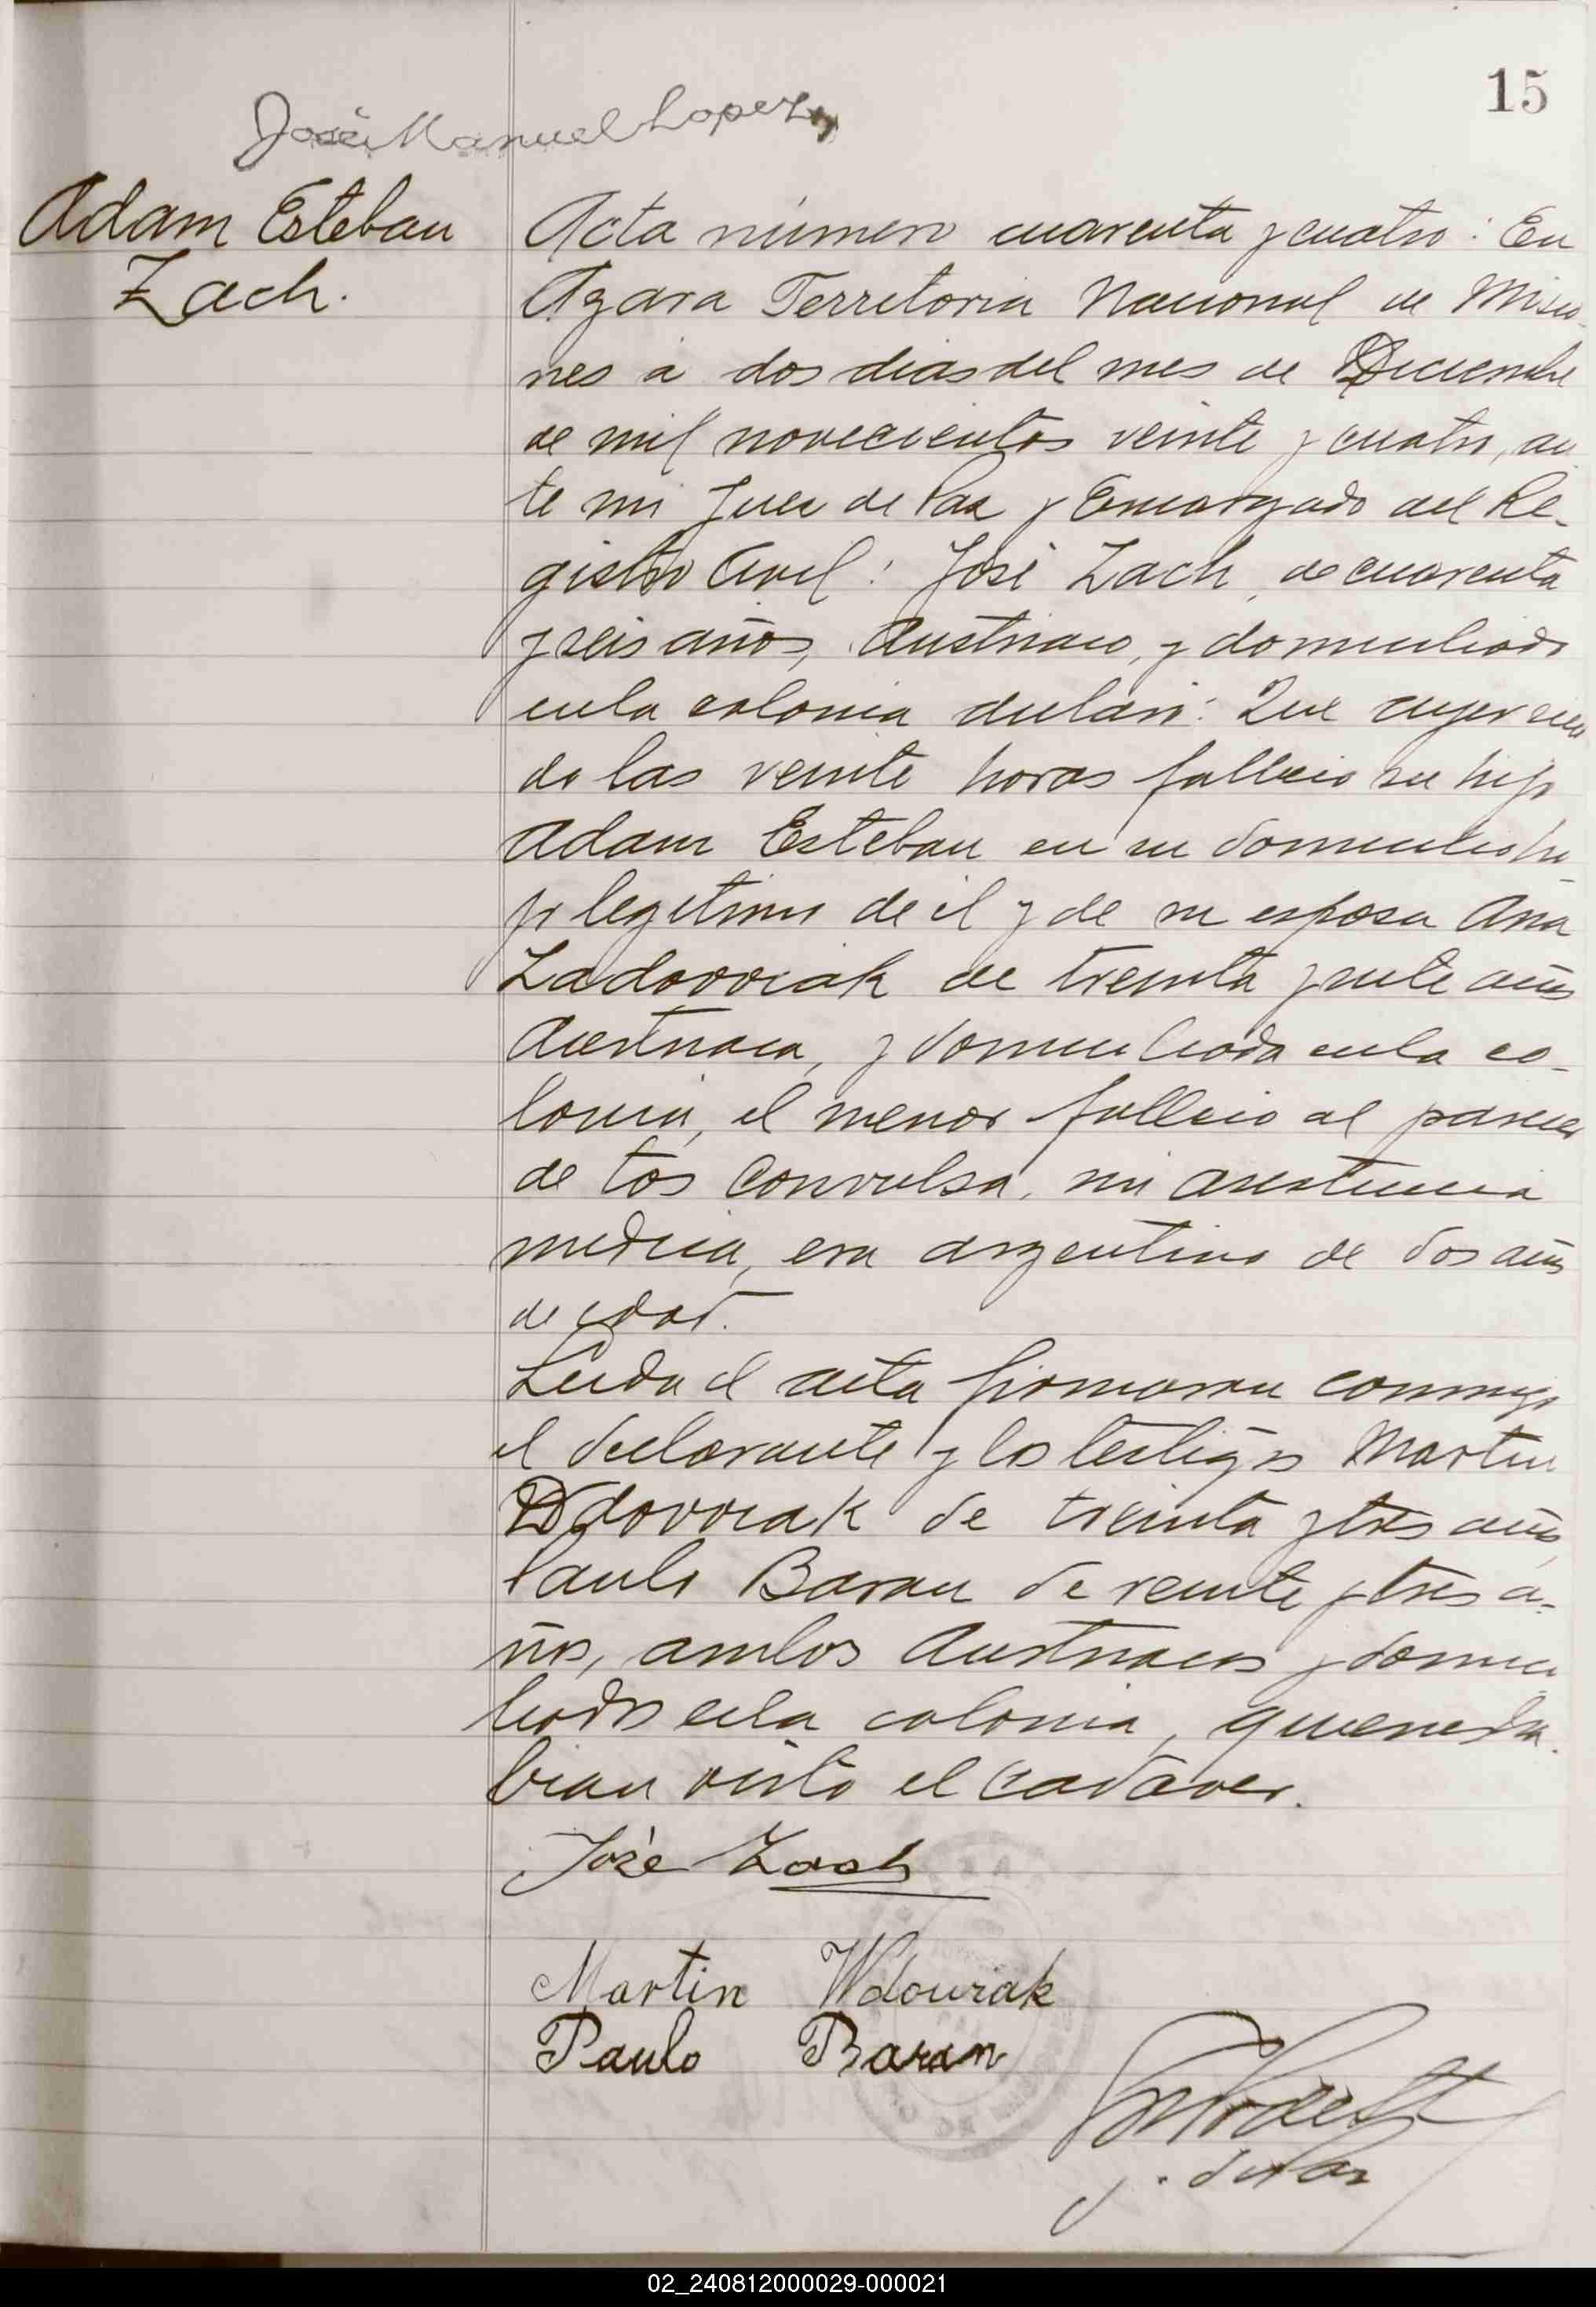 15
José Manuel Lopez
Adam Esteban
Zach.
Acta número cuarenta y cuatro: En
Azara Territorio Nacional de Misio-
nes á dos dias del mes de Diciembre
de mil novecientos veinte y cuatro, an
te mi Juez de Paz y Encargado del Re-
gistro Civil: José Zach, de cuarenta
y seis años, Austriaco, y domiciliado
en la colonia declaró: Que ayer sien
do las veinte horas falleció su hijo
Adam Esteban en su domicilio hi-
jo legitimo de él y de su esposa Ana
Zadovviak de treinta y siete años
Austriaca, y domiciliada en la co-
lonia, el menor falleció al parecer
de tos convulsa, sin asistencia
medica, era argentino de dos años
de edad.
Leida el acta firmaron conmigo
el declarante y los testigos Martin
Ddovviak de treinta y tres años,
Paulo Baran de veinte y tres a-
ños, ambos Austriacos y domici
liados en la colonia, quienes ha-
bian visto el cadáver.
José Zach
Martin Wdowiak
Paulo Baran
J. de Paz
02_240812000029-000021